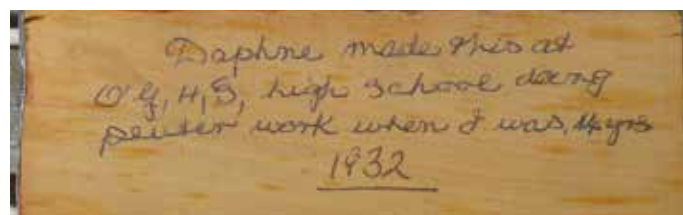 Daphne made this at
O'G,H,S, high school doing
pewter work when I was 14 yrs
1932